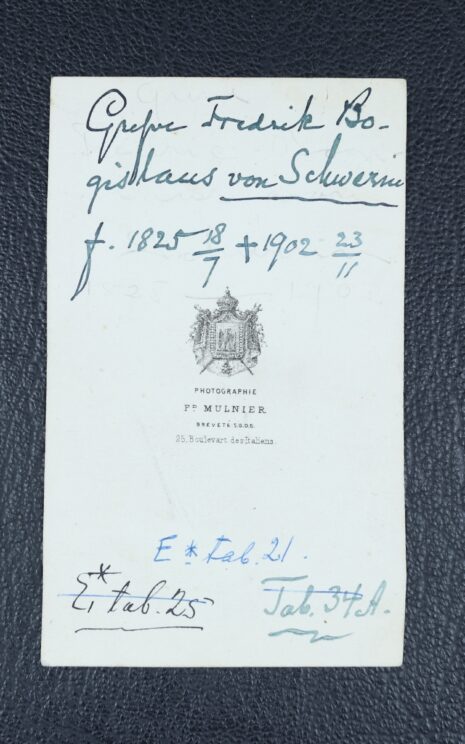 Greve Fredrik Bo-
gislaus von Schwerin
f. 1825 18/7 + 1902 23/11
PHOTOGRAPHIE
FD MULNIER
BREVETÉ S.G.D.G.
25, Boulevart des Italiens.
E * tab. 21.
E * tab. 25
Tab. 34A.